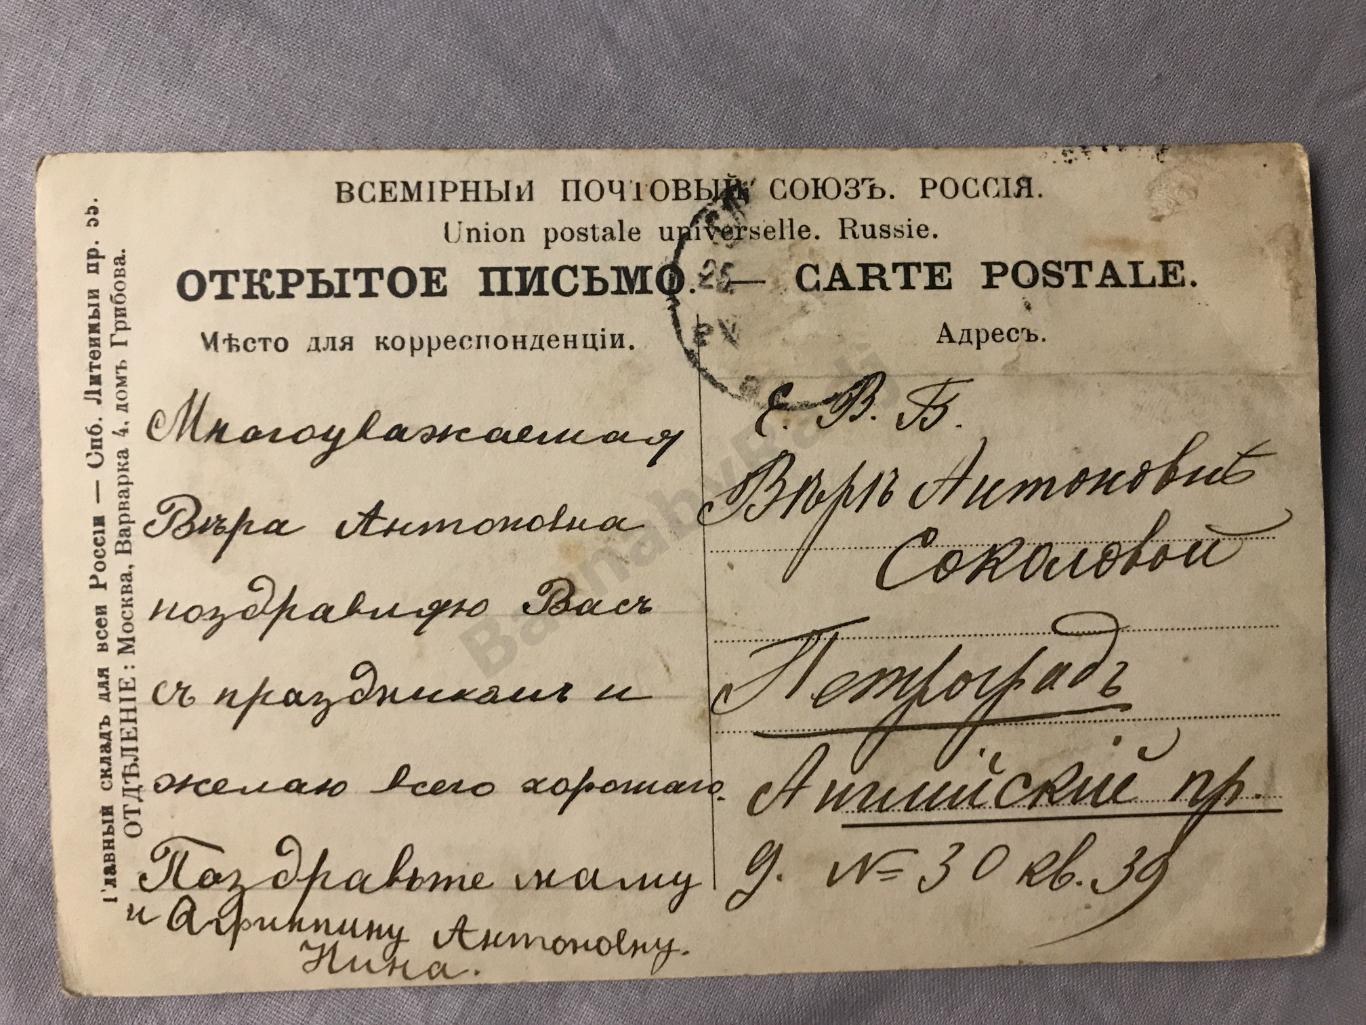 ВСЕМІРНЫЙ ПОЧТОВЫЙ СОЮЗЪ. РОССІЯ.
Union postale universelle. Russie.
ОТКРЫТОЕ ПИСЬМО. — CARTE POSTALE.
Мѣсто для корреспонденціи.
Адресъ.
Многоуважаемая
Вѣра Антоновна
поздравляю Васъ
съ праздникомъ и
желаю всего хорошаго.
Поздравьте маму
и Агриппину Антоновну.
Нина.
Е. В. Б.
Вѣрѣ Антоновнѣ
Соколовой
Петроградъ
Англійскій пр.
д. № 30 кв. 39
Главный складъ для всей Россіи — Спб. Литейный пр. 55.
ОТДѢЛЕНІЕ: Москва, Варварка 4, домъ Грибова.
BarnabyBadj